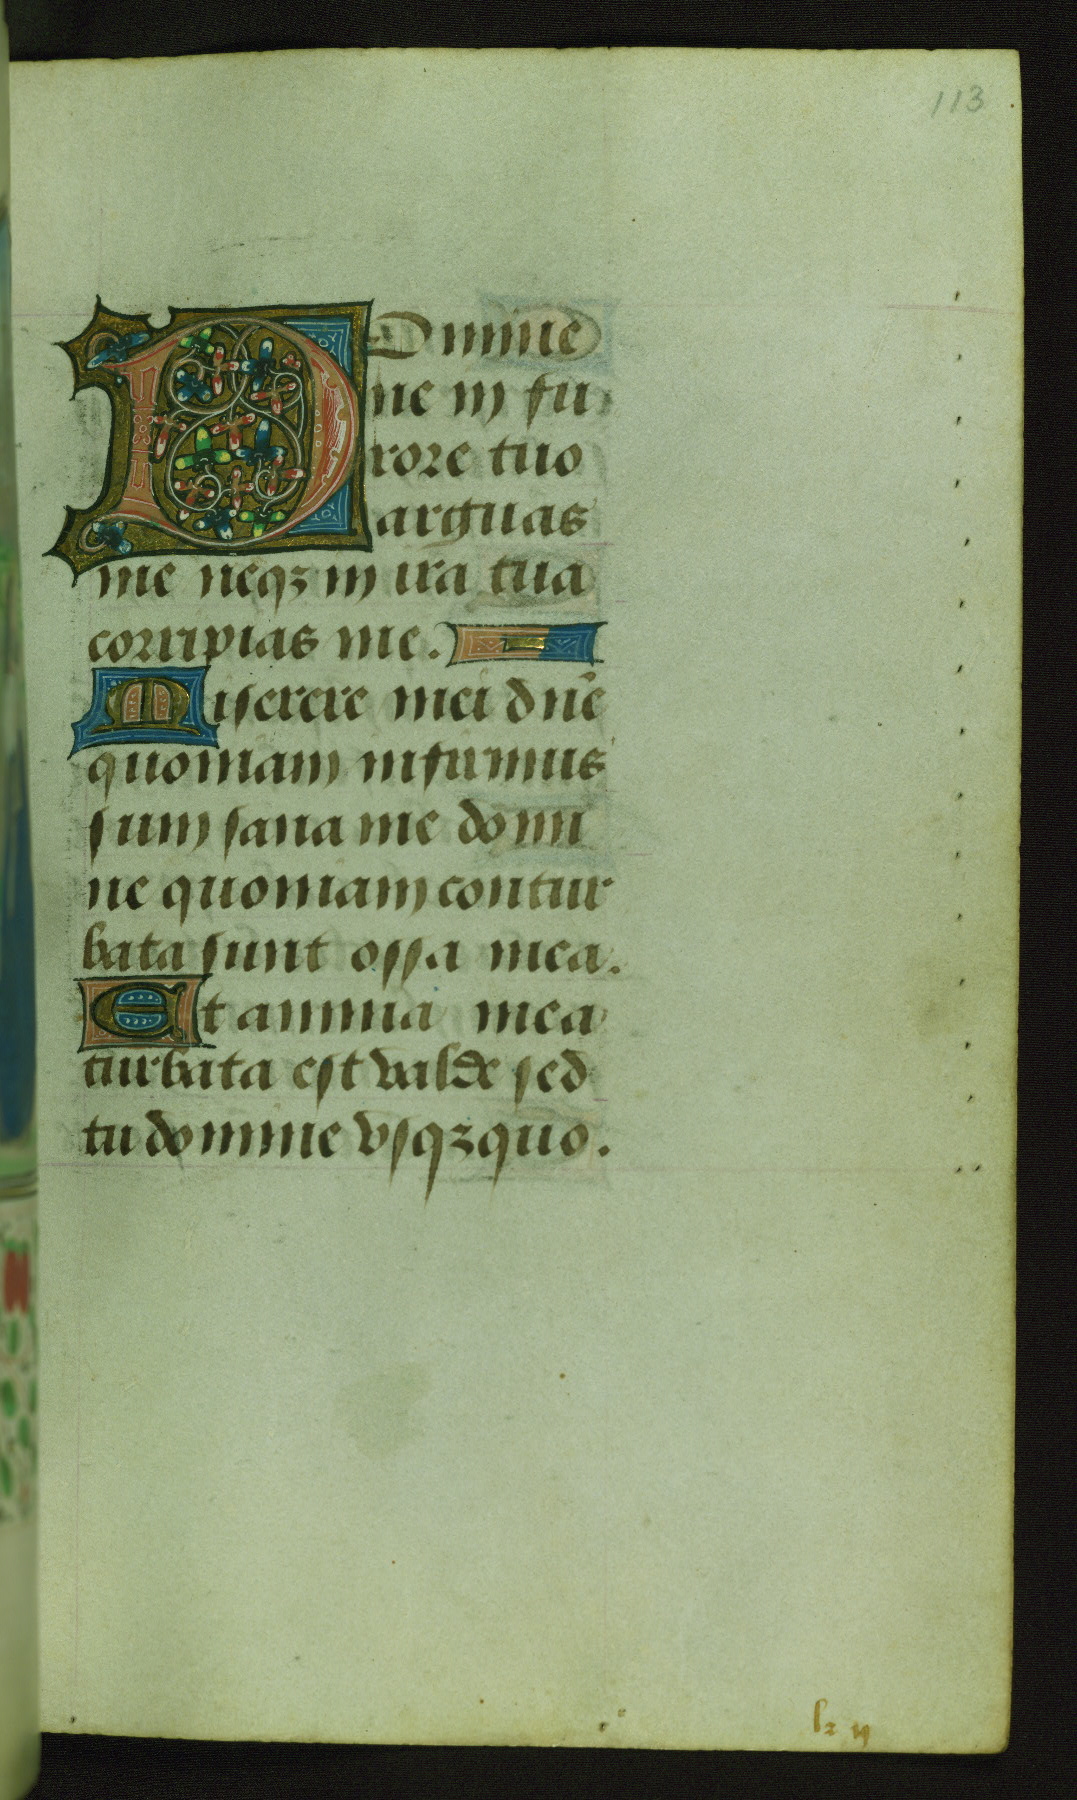 113
Domine
ne in fu
rore tuo
arguas
me neqꝫ in ira tua
corripias me.
Miserere mei dn̄e
quoniam infirmus
sum sana me domi
ne quoniam contur
bata sunt ossa mea.
Et anima mea
turbata est valde sed
tu domine vsqꝫquo.